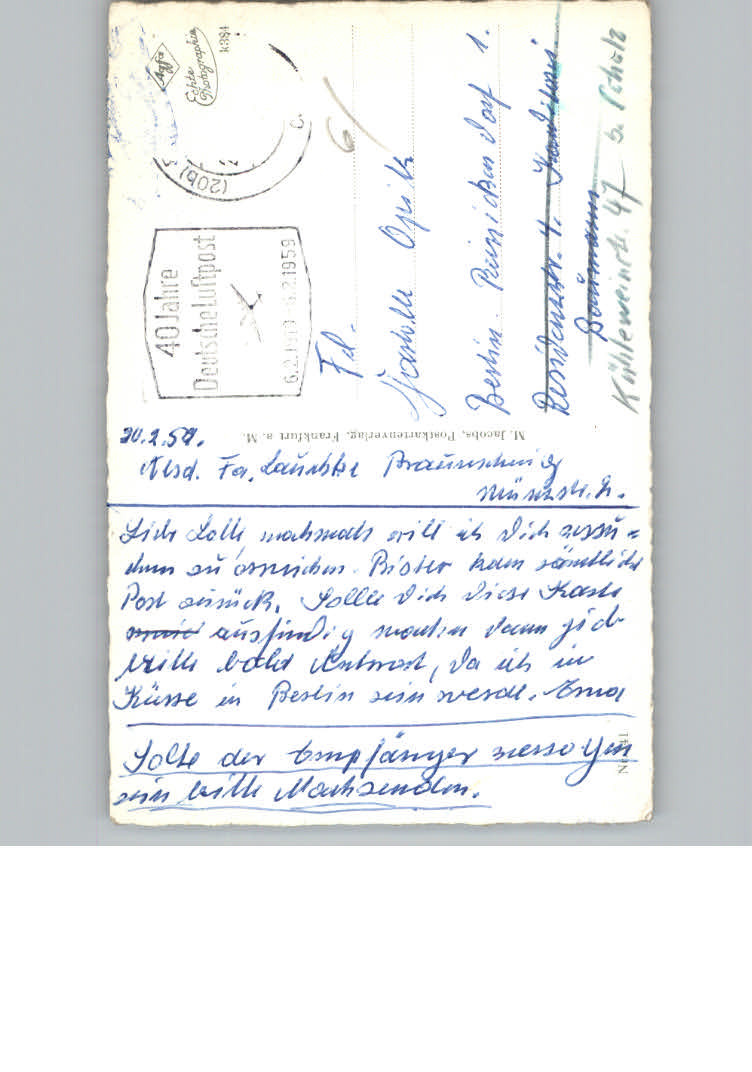 Agfa
Echte
Photographie
k384
(20b)
40 Jahre
Deutsche Luftpost
6.2.1919 6.2.1959
6
Frl.
Opitz
Berlin. Reinickendorf 1.
Residenzstr. 4.
Baumann
Kühleweinstr. 47 b. Scholz
M. Jacobs, Postkartenverlag, Frankfurt a. M.
20.2.59.
Absd. Fa. Braunschweig
Münzstr. 2.
Liebe Lotte nochmals will ich Dich versu=
chen zu erreichen. Bisher kam sämtliche
Post zurück. Sollte Dich diese Karte
ausfindig machen dann gieb
bitte bald Antwort, da ich in
Kürze in Berlin sein werde. Erna
Solte der Empfänger verzogen
sein bitte Nachsenden.